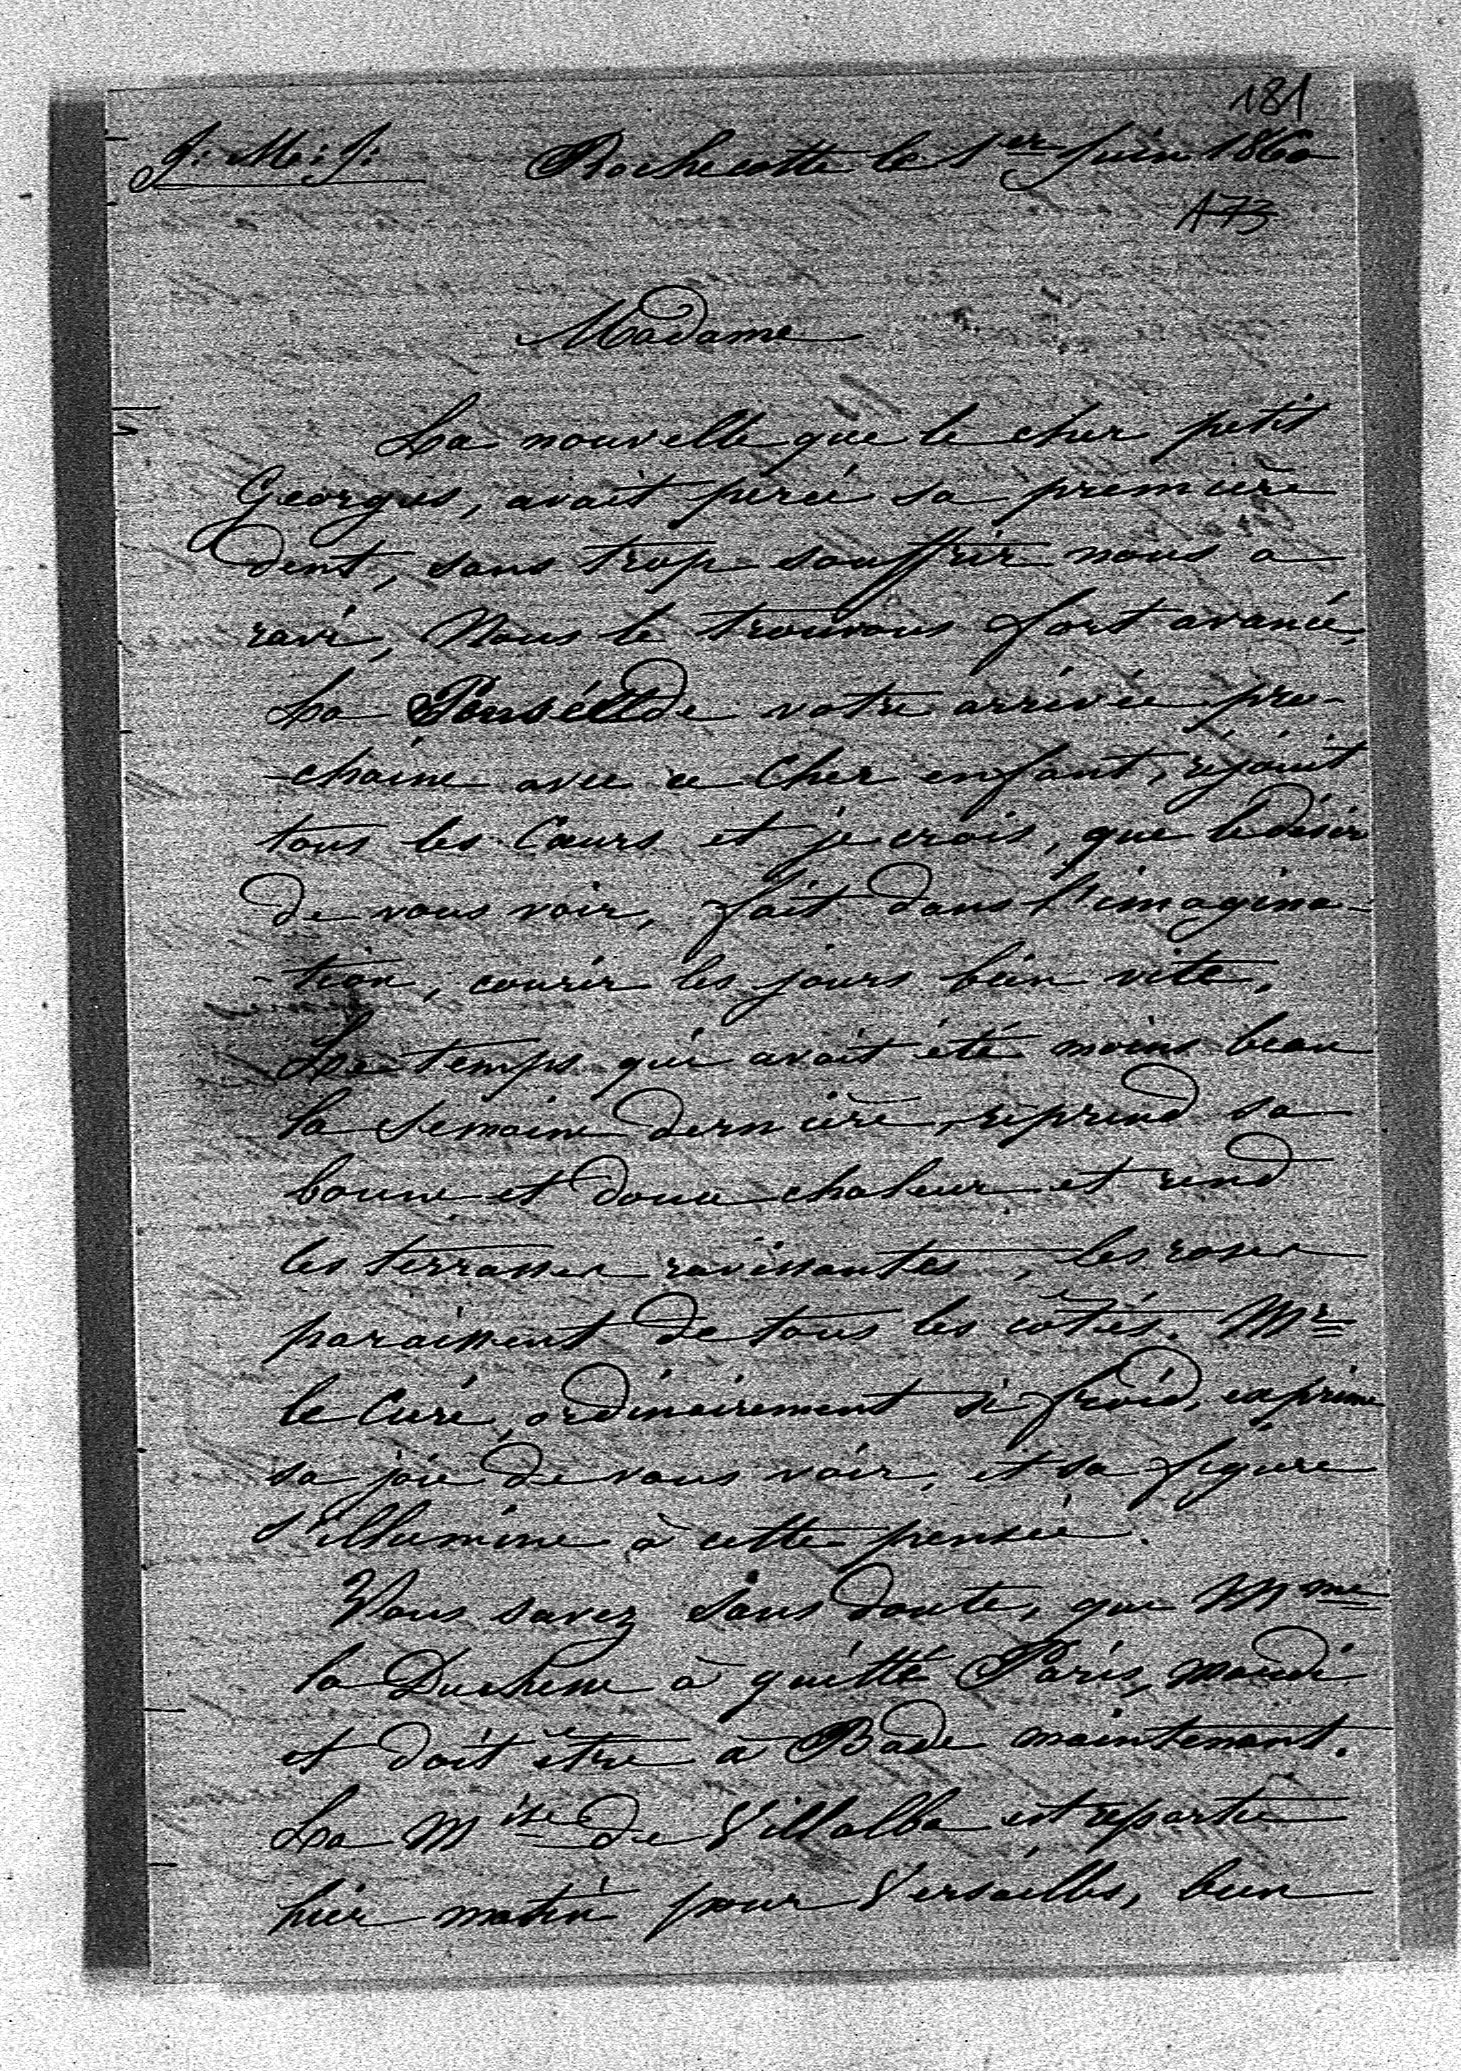 181
J: M: J: Rochecotte le 1er Juin 1860
A73
Madame
La nouvelle que le cher petit
Georges, avait percé sa première
dent, sans trop souffrir nous a
ravi, Nous le trouvons fort avancé,
La Pensée de votre arrivée pro-
-chaine avec ce Cher enfant, réjouit
tous les Cœurs et je crois, que le désir
de vous voir, fait dans l'imagina-
-tion, courir les jours bien vite,
Le temps qui avait été moins beau
la Semaine dernière, reprend sa
bonne et douce chaleur et rend
les terrasses ravissantes, les roses
paraissent de tous les côtés. Mr
le Curé, ordinairement si froid, exprime
sa joie de vous voir, et sa figure
s'illumine à cette pensée.
Vous savez sans doute, que Mme
la Duchesse à quitté Paris, mardi
et doit être à Bade maintenant.
La Mise de Villalba est repartie
hier matin pour Versailles, bien